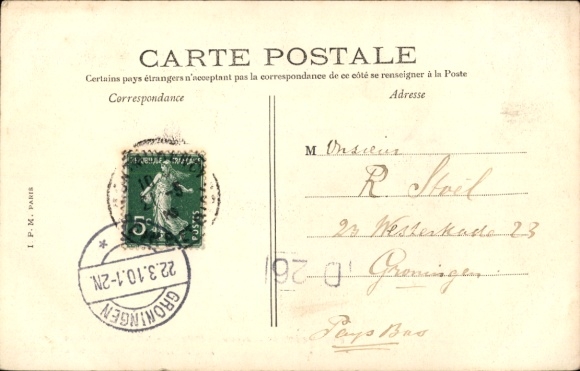 CARTE POSTALE
Certains pays étrangers n'acceptant pas la correspondance de ce côté se renseigner à la Poste
Correspondance
Adresse
I P. M. PARIS
REPUBLIQUE FRANÇAISE
5
POSTES
GRONINGEN
22.3.10.1-2N.
Monsieur
R Stoël
23 Westerkade 23
Groningen.
Pays Bas
D 26